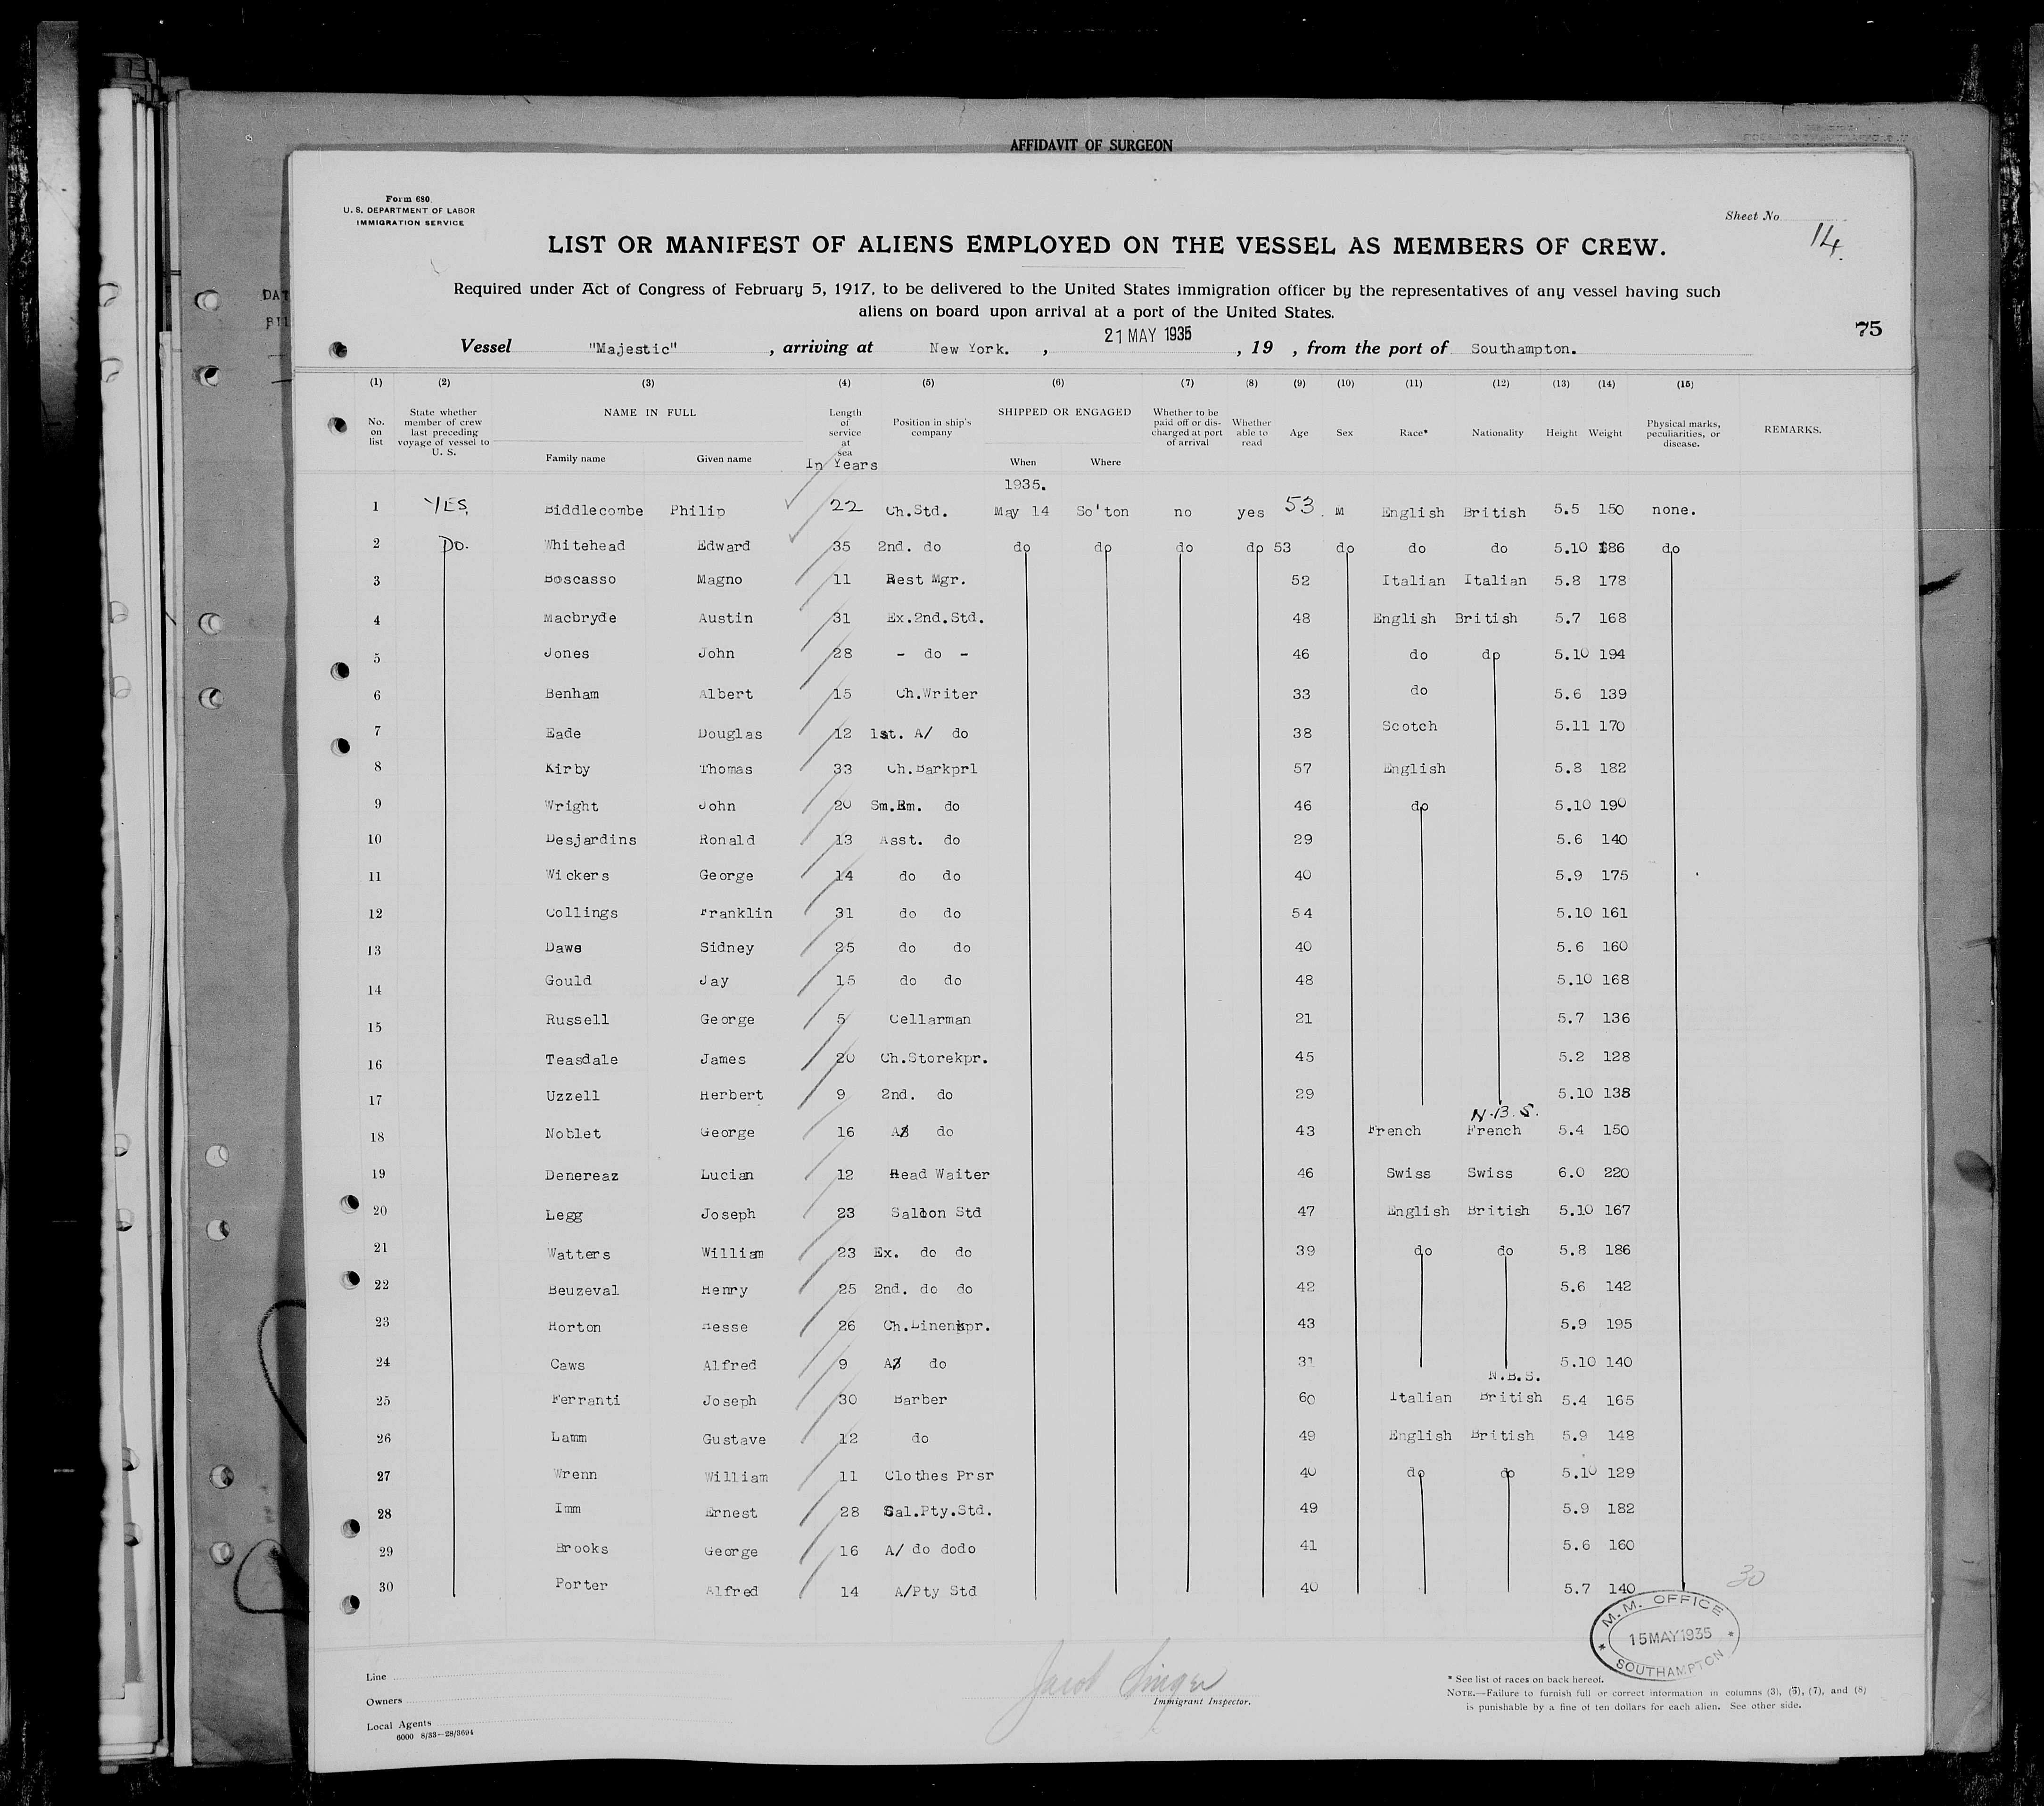 AFFIDAVIT OF SURGEON
Form 680
U. S. DEPARTMENT OF LABOR
IMMIGRATION SERVICE
Sheet No
14.
LIST OR MANIFEST OF ALIENS EMPLOYED ON THE VESSEL AS MEMBERS OF CREW.
Required under Act of Congress of February 5, 1917, to be delivered to the United States immigration officer by the representatives of any vessel having such
aliens on board upon arrival at a port of the United States.
75
21 MAY 1935
Vessel "Majestic" , arriving at New York. , , 19 , from the port of Southampton.
(1) (2) (3) (4) (5) (6) (7) (8) (9) (10) (11) (12) (13) (14) (15)
No. on list State whether member of crew last preceding voyage of vessel to U. S. NAME IN FULL Family name Given name Length of service at sea In Years Position in ship's company SHIPPED OR ENGAGED When Where Whether to be paid off or discharged at port of arrival Whether able to read Age Sex Race* Nationality Height Weight Physical marks, peculiarities, or disease. REMARKS.
1935.
1 YES, Biddlecombe Philip 22 Ch.Std. May 14 So'ton no yes 53. M English British 5.5 150 none.
2 Do. Whitehead Edward 35 2nd. do do do do do 53 do do do 5.10 186 do
3 Boscasso Magno 11 Rest Mgr. 52 Italian Italian 5.8 178
4 Macbryde Austin 31 Ex.2nd.Std. 48 English British 5.7 168
5 Jones John 28 - do - 46 do do 5.10 194
6 Benham Albert 15 Ch.Writer 33 do 5.6 139
7 Eade Douglas 12 1st. A/ do 38 Scotch 5.11 170
8 Kirby Thomas 33 Ch.Barkprl 57 English 5.8 182
9 Wright John 20 Sm.Rm. do 46 do 5.10 190
10 Desjardins Ronald 13 Asst. do 29 5.6 140
11 Wickers George 14 do do 40 5.9 175
12 Collings Franklin 31 do do 54 5.10 161
13 Dawe Sidney 25 do do 40 5.6 160
14 Gould Jay 15 do do 48 5.10 168
15 Russell George 5 Cellarman 21 5.7 136
16 Teasdale James 20 Ch.Storekpr. 45 5.2 128
17 Uzzell Herbert 9 2nd. do 29 5.10 138
N.B.S.
18 Noblet George 16 A/ do 43 French French 5.4 150
19 Denereaz Lucian 12 Head Waiter 46 Swiss Swiss 6.0 220
20 Legg Joseph 23 Saloon Std 47 English British 5.10 167
21 Watters William 23 Ex. do do 39 do do 5.8 186
22 Beuzeval Henry 25 2nd. do do 42 5.6 142
23 Horton Hesse 26 Ch.Linenkpr. 43 5.9 195
24 Caws Alfred 9 A/ do 31 5.10 140
N.B.S.
25 Ferranti Joseph 30 Barber 60 Italian British 5.4 165
26 Lamm Gustave 12 do 49 English British 5.9 148
27 Wrenn William 11 Clothes Prsr 40 do do 5.10 129
28 Imm Ernest 28 Sal.Pty.Std. 49 5.9 182
29 Brooks George 16 A/ do dodo 41 5.6 160
30 Porter Alfred 14 A/Pty Std 40 5.7 140
30
M.M. OFFICE
15 MAY 1935
SOUTHAMPTON
Line
Owners
Local Agents
6000 8/33—28/3694
Jacob Singer
Immigrant Inspector.
* See list of races on back hereof.
NOTE.—Failure to furnish full or correct information in columns (3), (5), (7), and (8)
is punishable by a fine of ten dollars for each alien. See other side.